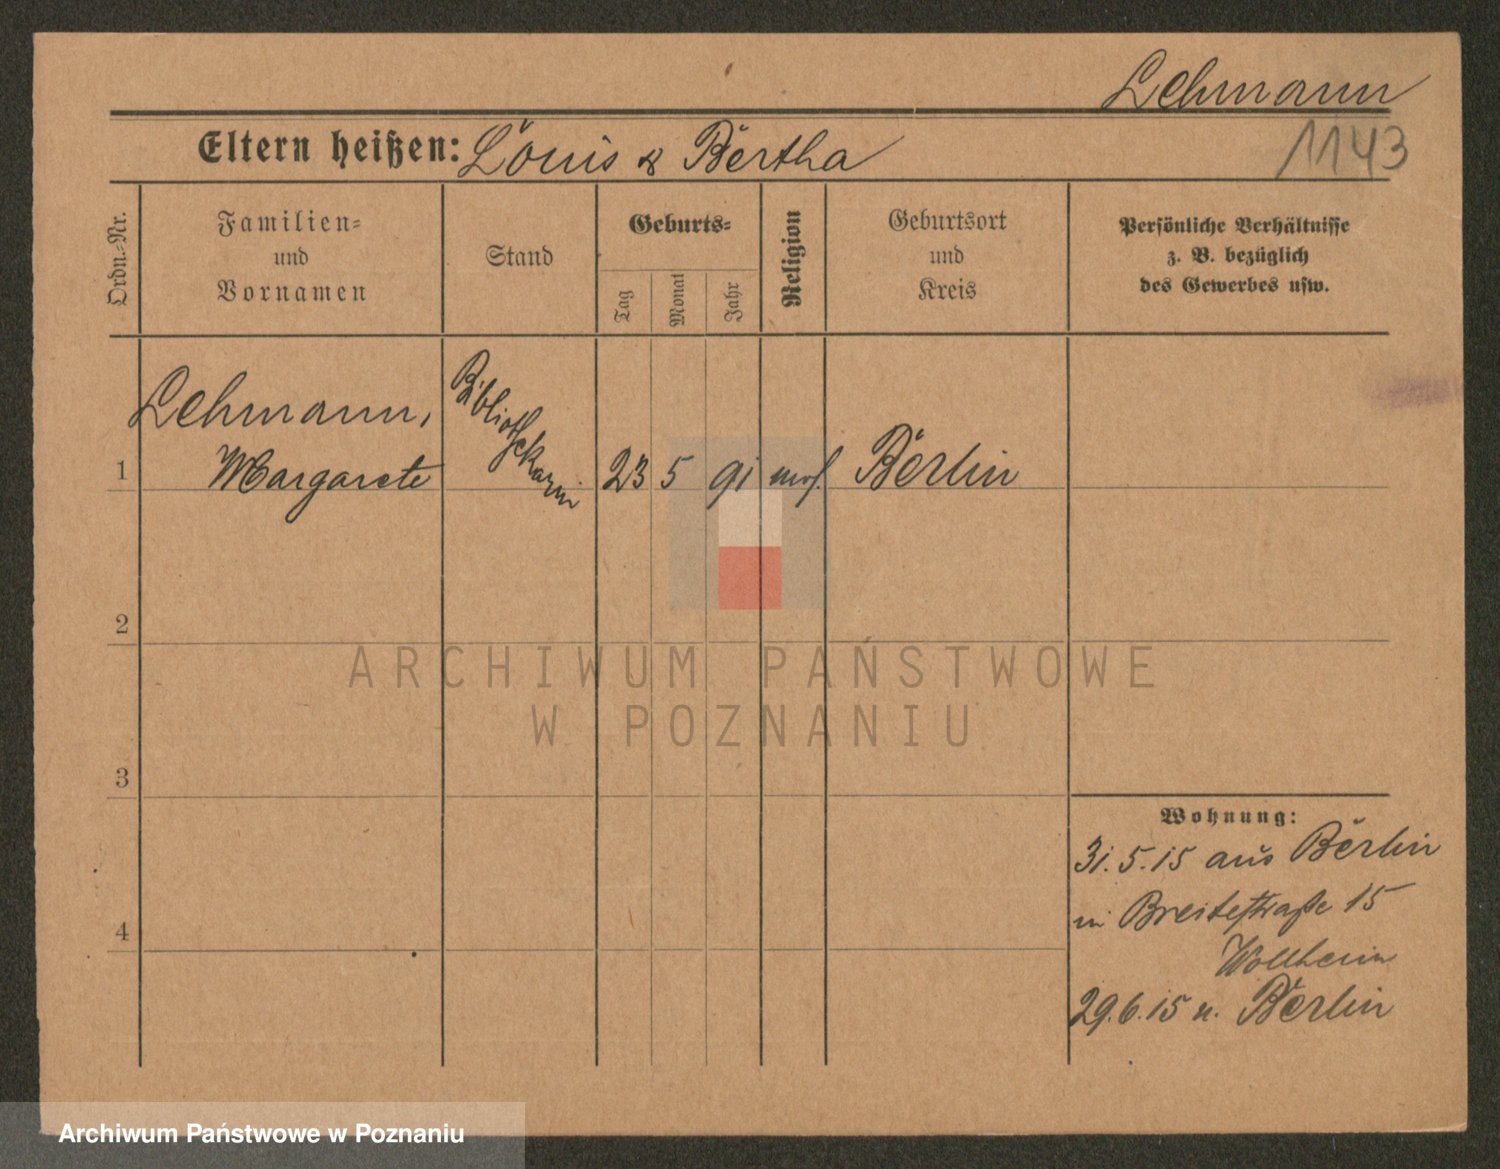 Lehmann
1143
Eltern heißen: Louis & Bertha
Ordn.-Nr.
Familien-
und
Vornamen
Stand
Geburts-
Tag
Monat
Jahr
Religion
Geburtsort
und
Kreis
Persönliche Verhältnisse
z. B. bezüglich
des Gewerbes usw.
1
Lehmann,
Margarete
Bibliothekarin
23 5 91 mos. Berlin
2
3
4
Wohnung:
31.5.15 aus Berlin
in Breitestraße 15
Wollheim
29.6.15 n. Berlin
ARCHIWUM PAŃSTWOWE
W POZNANIU
Archiwum Państwowe w Poznaniu